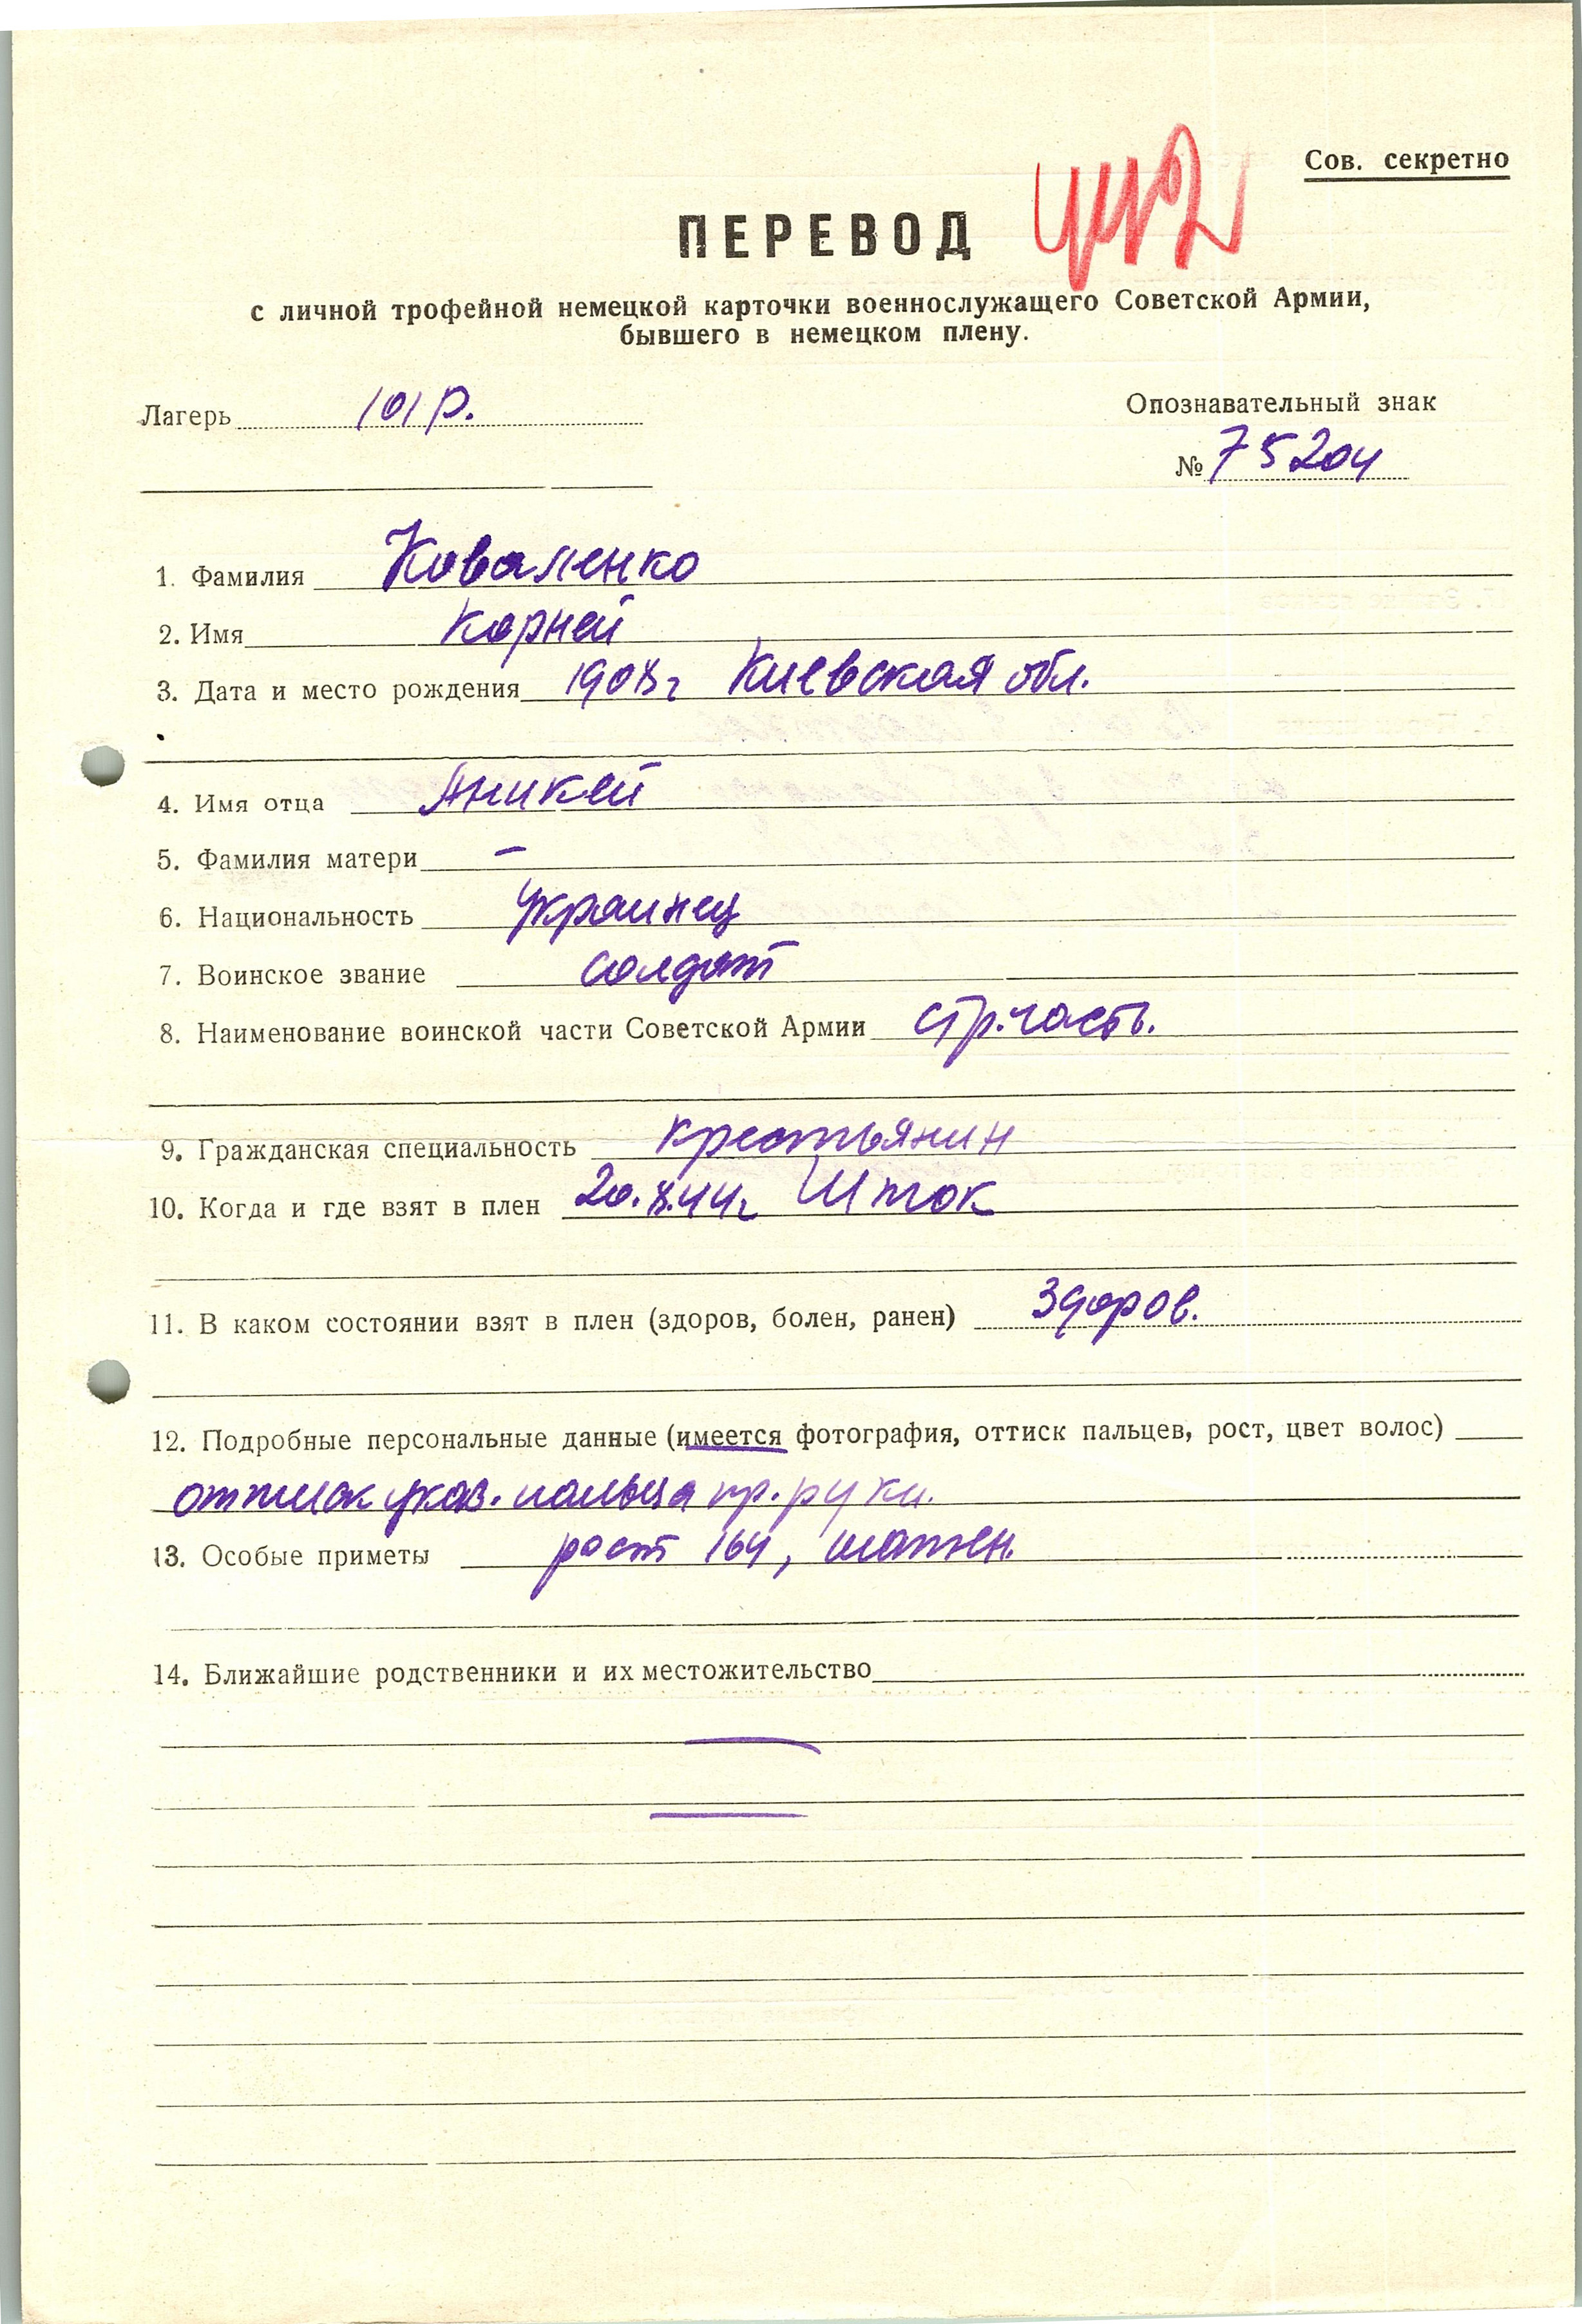 Сов. секретно
ПЕРЕВОД
с личной трофейной немецкой карточки военнослужащего Советской Армии,
бывшего в немецком плену.
Лагерь 101 р.
Опознавательный знак
№ 75204
1. Фамилия Коваленко
2. Имя Корней
3. Дата и место рождения Киевская обл.
4. Имя отца Аникей
5. Фамилия матери –
6. Национальность украинец
7. Воинское звание солдат
8. Наименование воинской части Советской Армии стр. часть.
9. Гражданская специальность крестьянин
10. Когда и где взят в плен 20.X.44г Шток
11. В каком состоянии взят в плен (здоров, болен, ранен) здоров.
12. Подробные персональные данные (имеется фотография, оттиск пальцев, рост, цвет волос)
оттиск указ. пальца пр. руки.
13. Особые приметы рост 164, шатен.
14. Ближайшие родственники и их местожительство